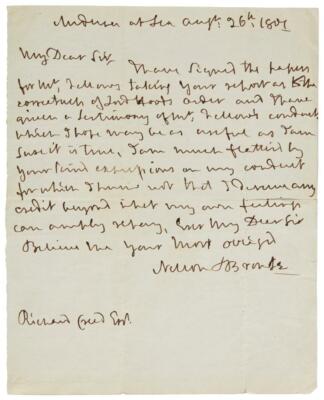 Medusa at Sea Augt: 26th: 1801
My Dear Sir
I have signed the papers
for Mr. Fellows taking your report as to the
correctness of Lord Hoods order and I have
given a testimony of Mr. Fellows conduct
which I hope may be as useful as I am
sure it is true, I am much flatter'd by
your kind expressions on my conduct
for which I
not that I deserve any
credit beyond what my own feelings
can amply repay, Ever My Dear Sir
Believe me your Most obliged
Nelson & Bronte
Richard Creed Esqr.